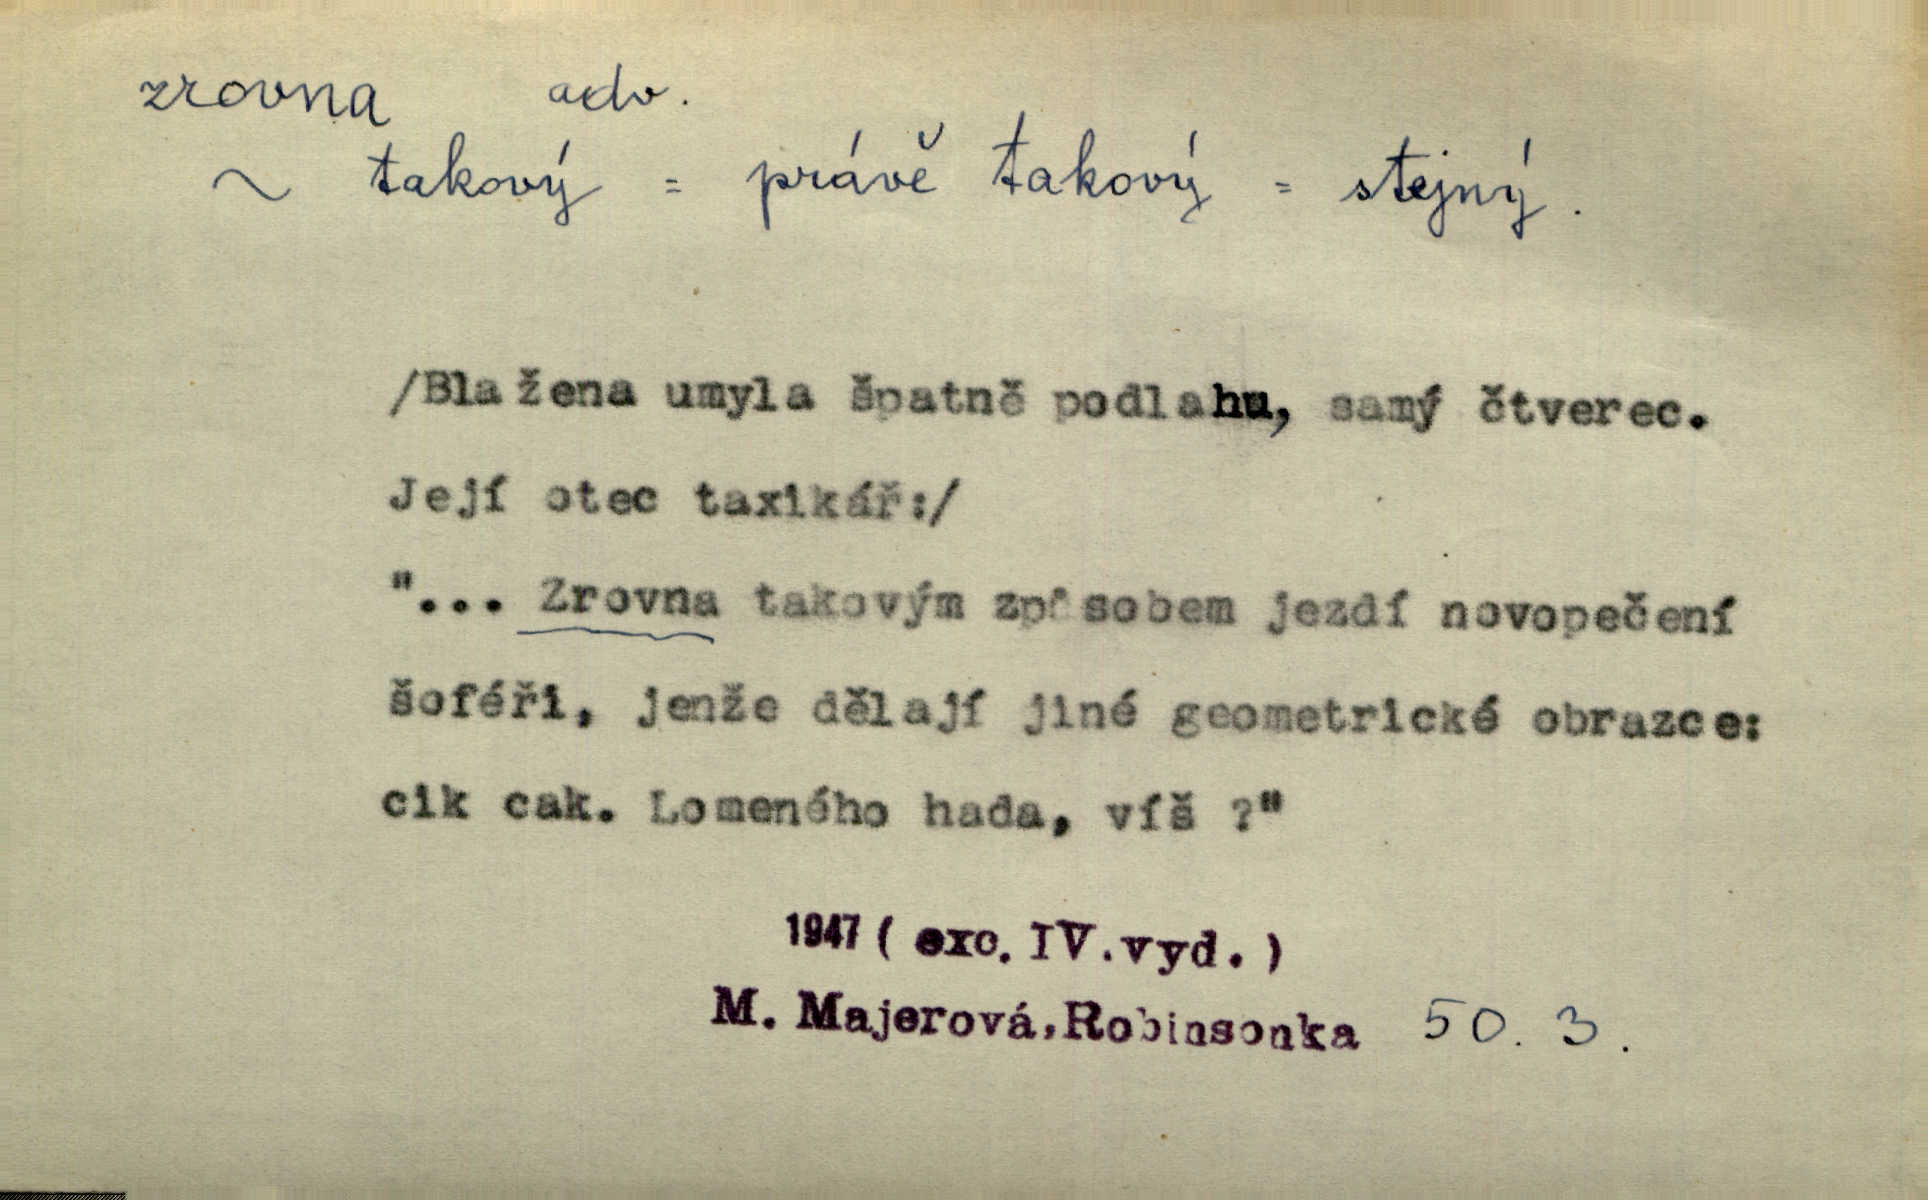 zrovna adv.
~ takový = právě takový = stejný.
/Blažena umyla špatně podlahu, samý čtverec.
Její otec taxikář:/
"... Zrovna takovým způsobem jezdí novopečení
šoféři, jenže dělají jiné geometrické obrazce:
cik cak. Lomeného hada, víš ?"
1947 ( exc. IV. vyd. )
M. Majerová, Robinsonka 50. 3.